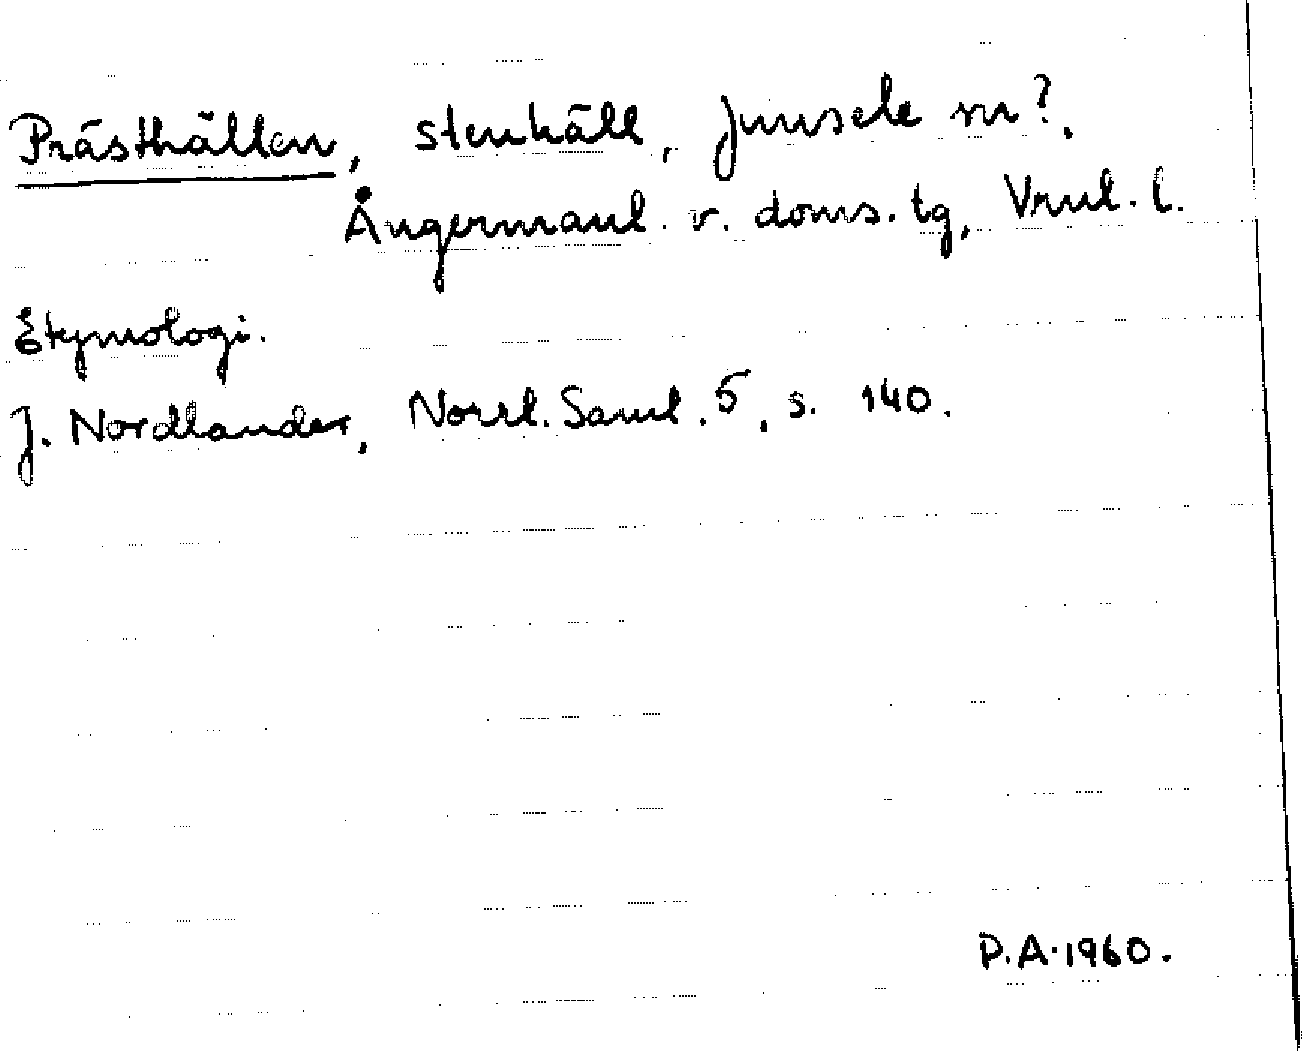 Prästhällen, stenhäll, Junsele sn?.
Ångermanl. v. doms. tg, Vrnl. l.
Etymologi.
J. Nordlander, Norrl. Saml. 5, s. 140.
P.A. 1960.